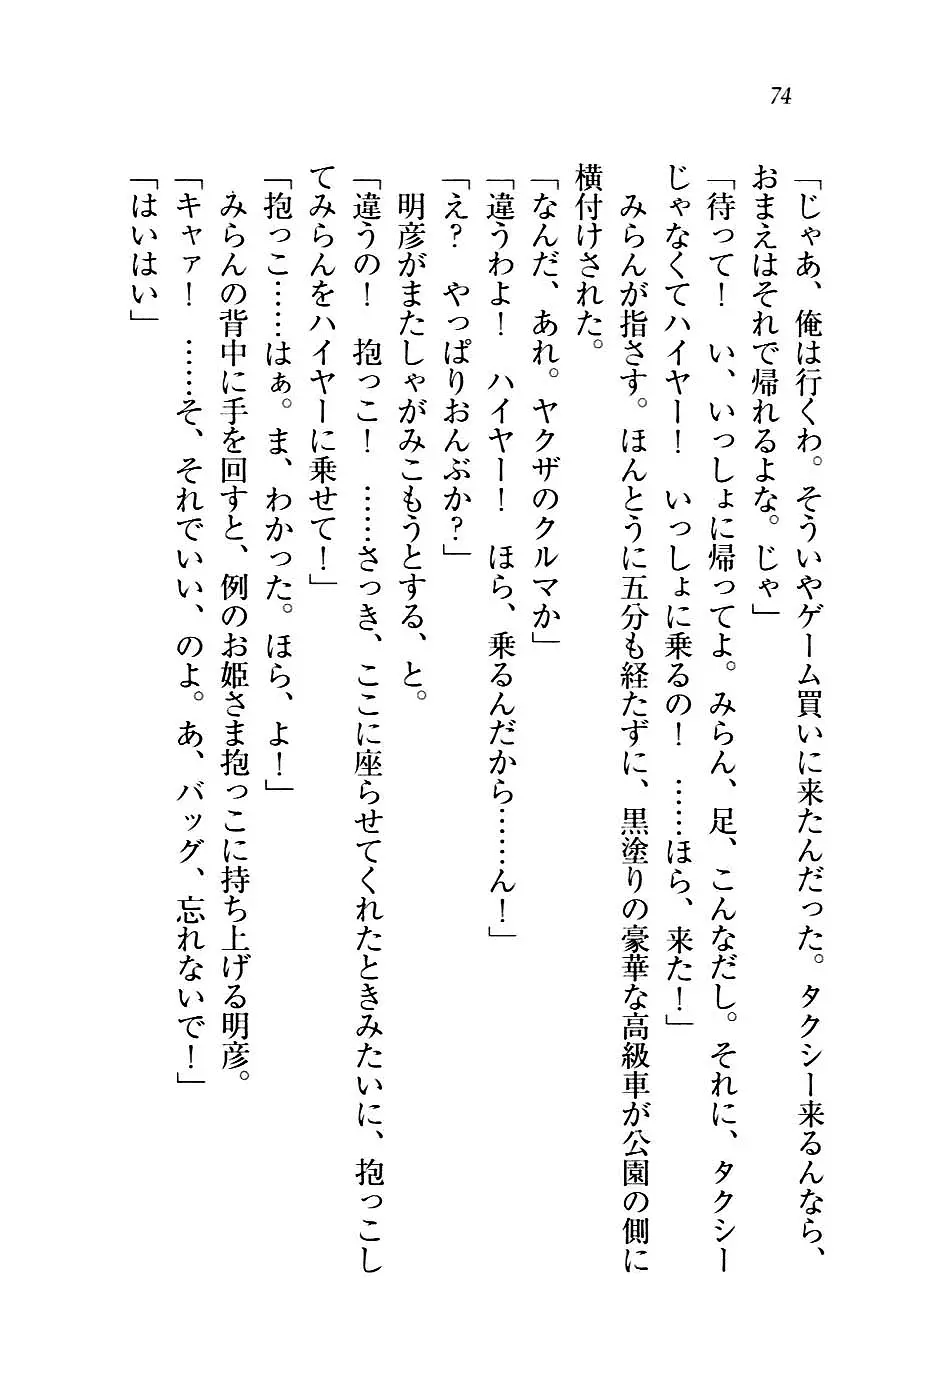 74
「じゃあ、俺は行くわ。そういやゲーム買いに来たんだった。タクシー来るんなら、
おまえはそれで帰れるよな。じゃ」
「待って！　い、いっしょに帰ってよ。みらん、足、こんなだし。それに、タクシー
じゃなくてハイヤー！　いっしょに乗るの！　……ほら、来た！」
みらんが指さす。ほんとうに五分も経たずに、黒塗りの豪華な高級車が公園の側に
横付けされた。
「なんだ、あれ。ヤクザのクルマか」
「違うわよ！　ハイヤー！　ほら、乗るんだから……ん！」
「え？　やっぱりおんぶか？」
明彦がまたしゃがみこもうとする、と。
「違うの！　抱っこ！　……さっき、ここに座らせてくれたときみたいに、抱っこし
てみらんをハイヤーに乗せて！」
「抱っこ……はぁ。ま、わかった。ほら、よ！」
みらんの背中に手を回すと、例のお姫さま抱っこに持ち上げる明彦。
「キャァ！　……そ、それでいい、のよ。あ、バッグ、忘れないで！」
「はいはい」